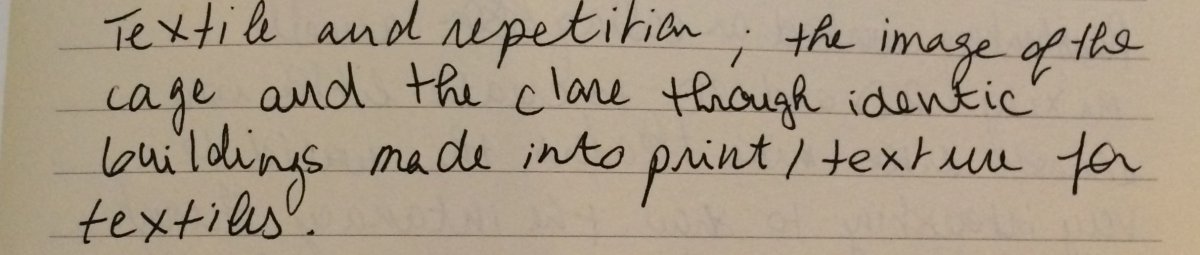 Textile and repetition ; the image of the
cage and the clone through identic
buildings made into print / texture for
textiles.